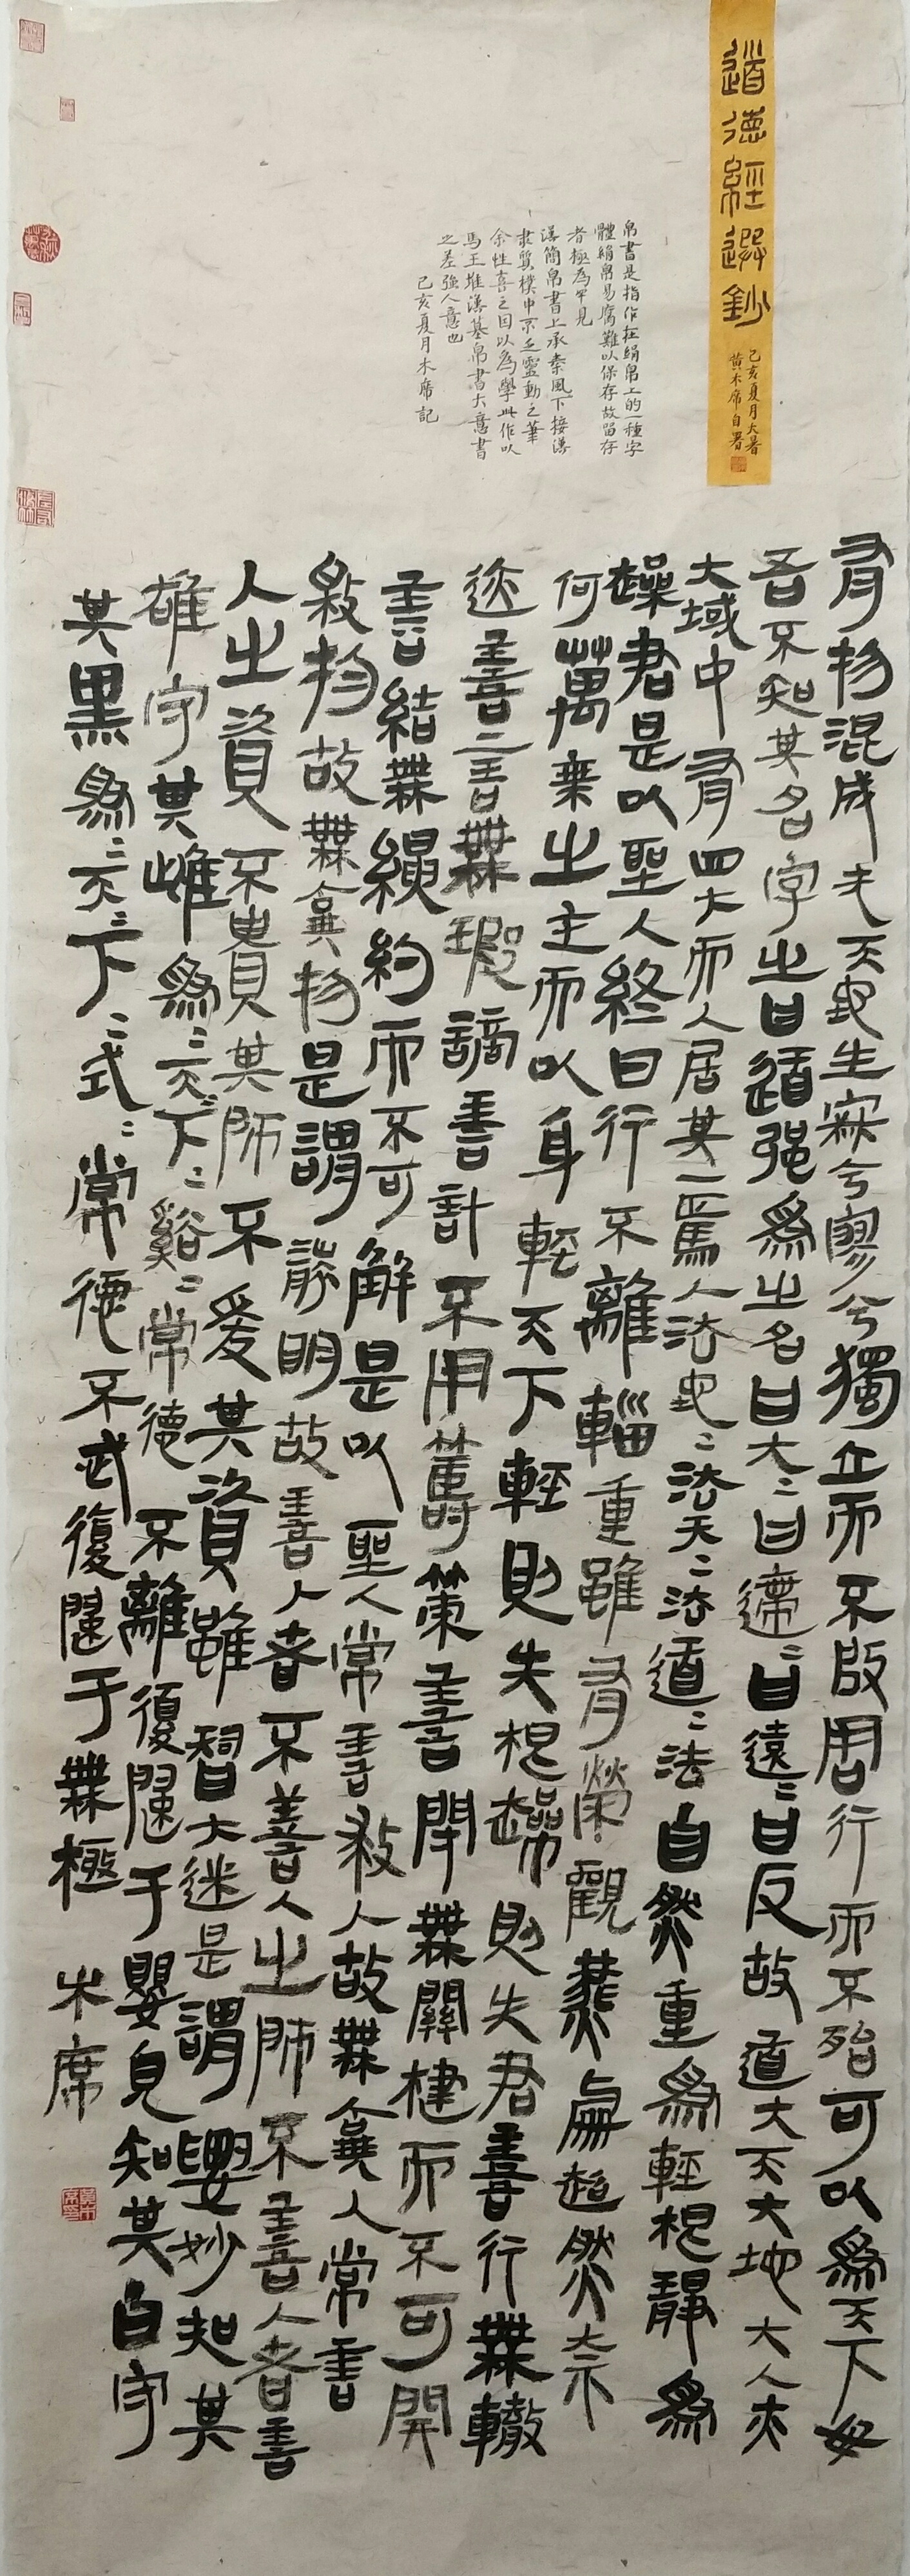 道德經選鈔
己亥夏月大暑
黄木席自署
帛書是指作在絹帛上的一種字
體絹帛易腐難以保存故留存
者極為罕見
漢簡帛書上承秦風下接漢
隶質樸中不乏靈動之筆
余性喜之因以為學此作以
馬王堆漢墓帛書大意書
之差強人意也
己亥夏月木席記
有物混成先天地生寂兮寥兮獨立而不改周行而不殆可以為天下母
吾不知其名字之曰道強為之名曰大〻曰逝〻曰遠〻曰反故道大天大地大人亦
大域中有四大而人居其一焉人法地〻法天〻法道〻法自然重為輕根靜為
躁君是以聖人終日行不離輜重雖有榮觀燕處超然奈
何萬乘之主而以身輕天下輕則失根躁則失君善行無轍
迹善言無瑕謫善計不用籌策善閉無關楗而不可開
善結無繩約而不可解是以聖人常善救人故無棄人常善
救物故無棄物是謂襲明故善人者不善人之師不善人者善
人之資不貴其師不愛其資雖智大迷是謂要妙知其
雄守其雌為〻天〻下〻谿〻常德不離復歸于嬰兒知其白守
其黑為〻天〻下〻式〻常德不忒復歸于無極 木席